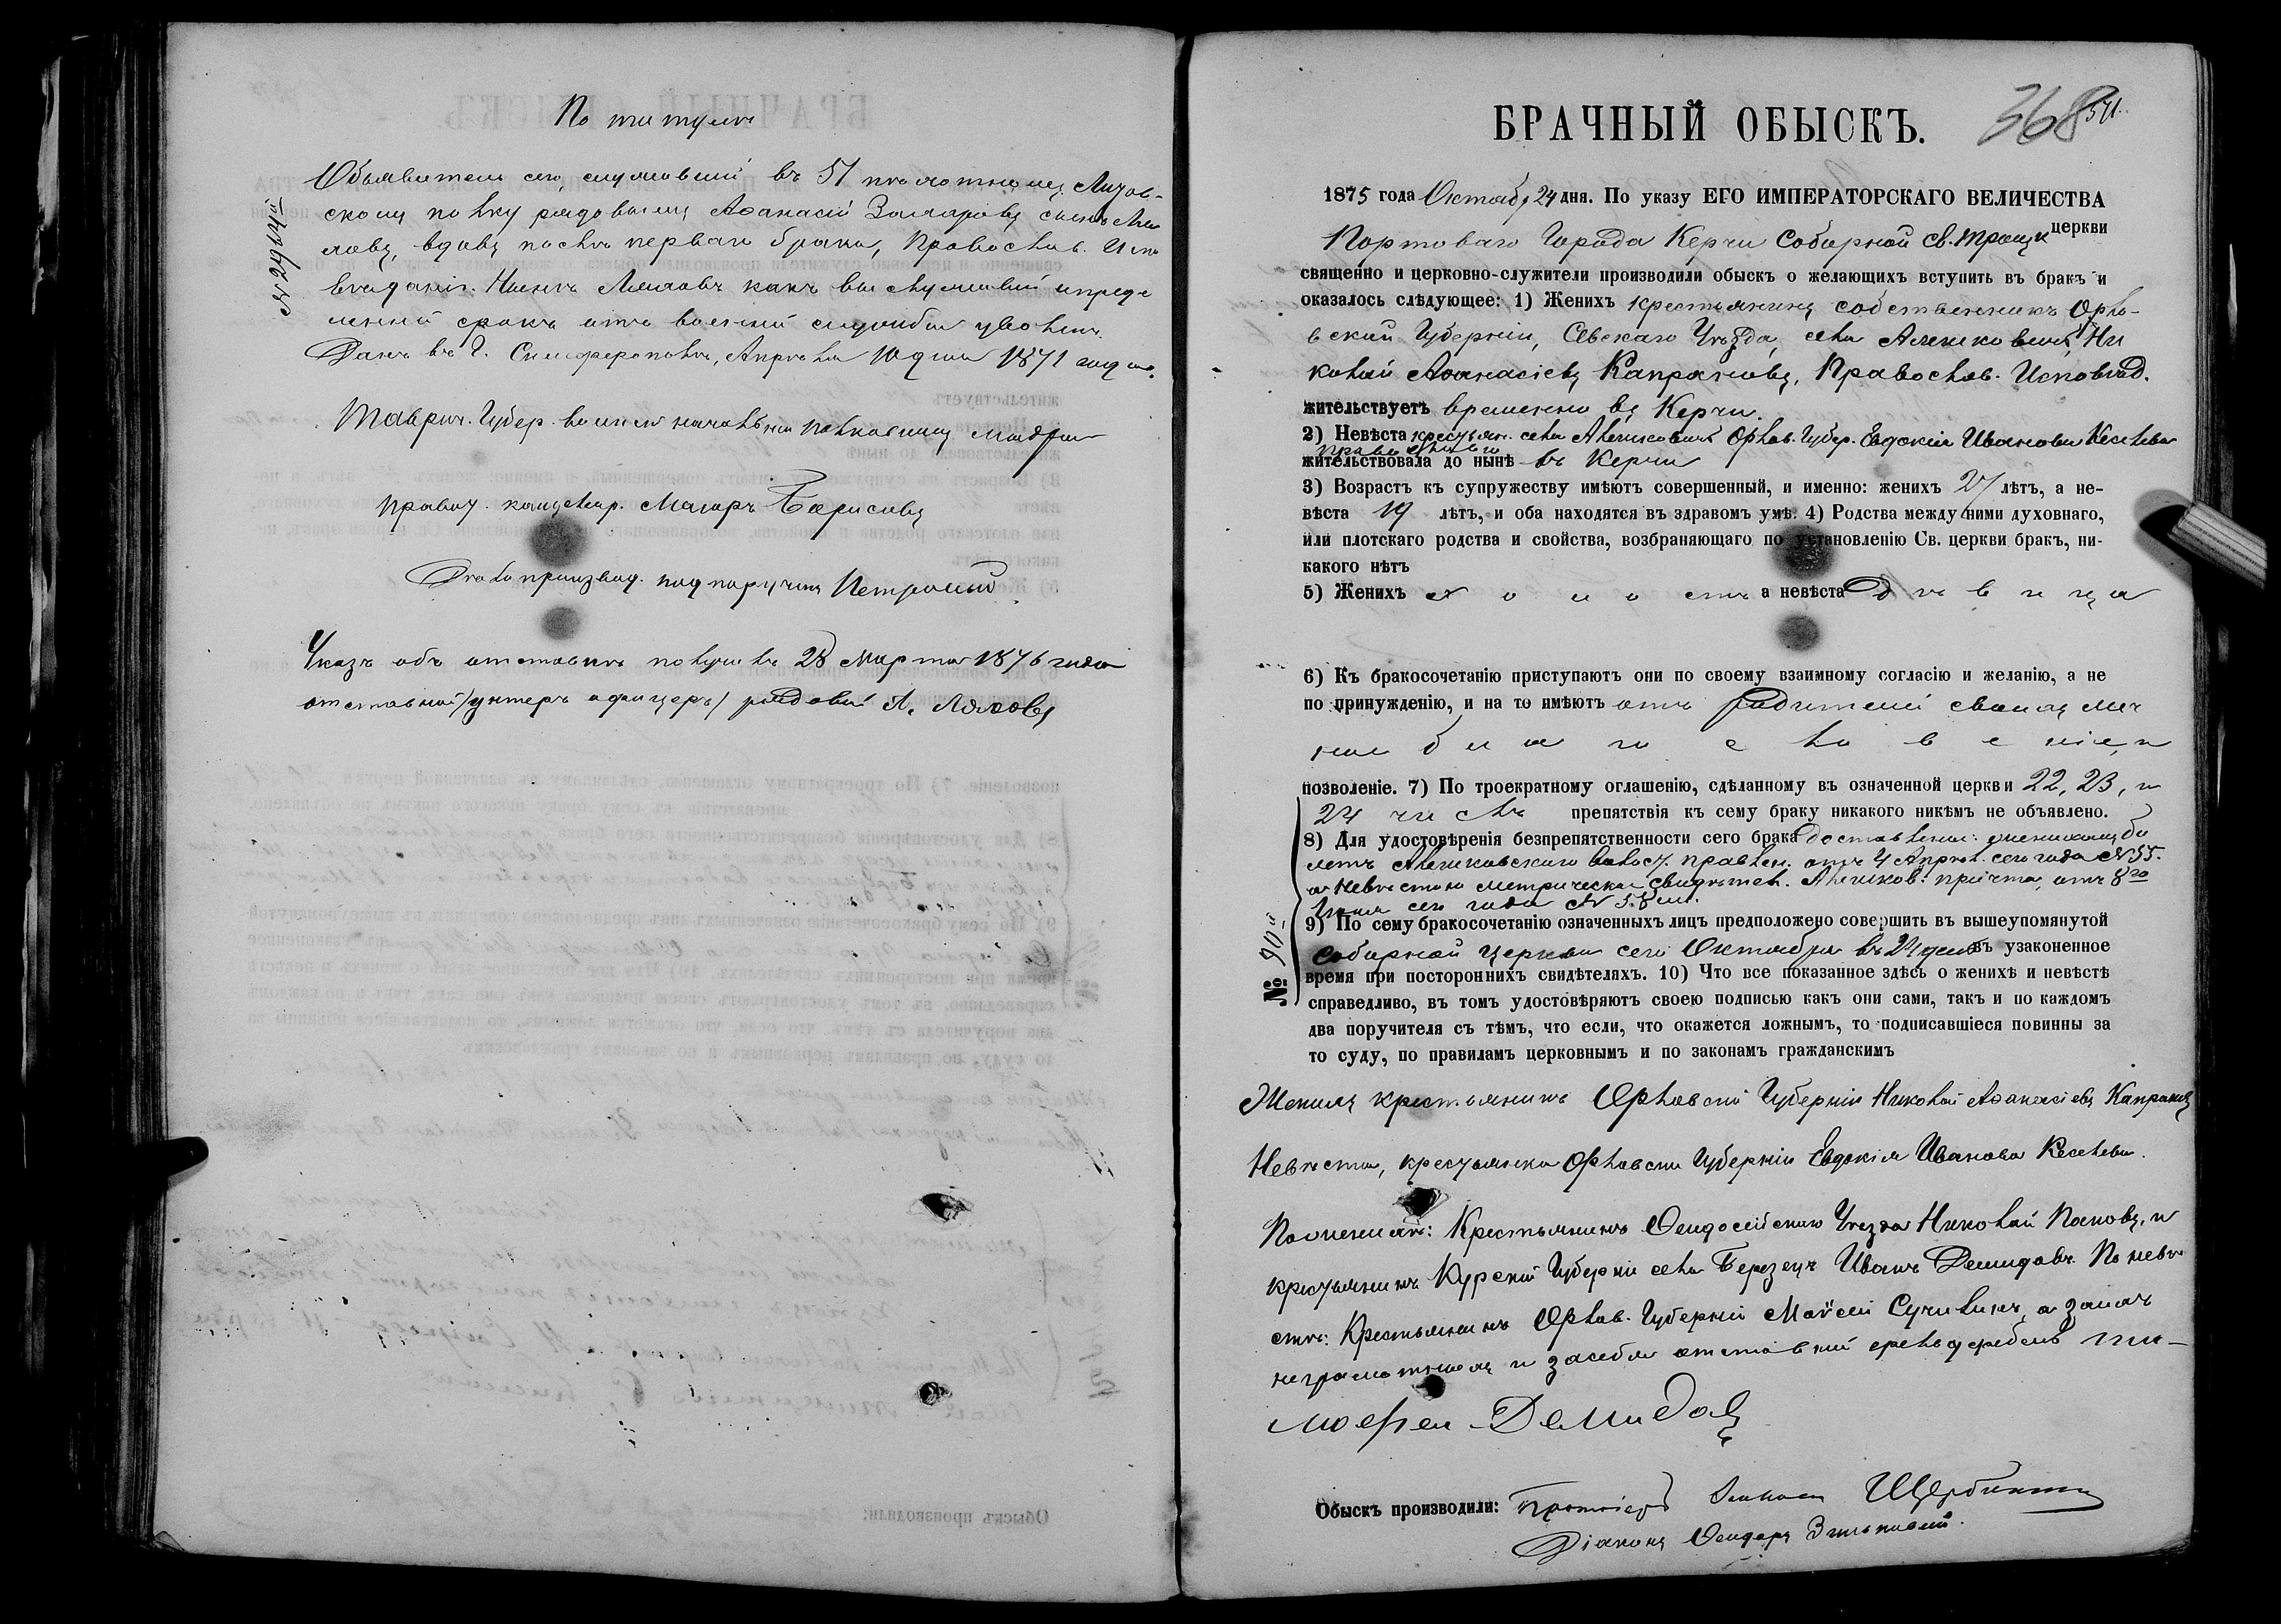 По титулѣ
Объявитель сего, служившій въ 51 пѣхотномъ Литов-
скомъ полку рядовымъ Аѳанасій Захаровъ сынъ Ля
ховъ, вдовъ послѣ перваго брака, Православ. Испо
вѣданія. Нынѣ Ляховъ какъ выслужившій опредѣ
ленный срокъ отъ военной службы уволенъ.
Данъ въ г. Симферополѣ, Апрѣля 10 дня 1871 года.
№ 2674й
Таврич. Губер. воинск. начальн. Полковникъ
Правит. канцеляр. Маіоръ Борисовъ
Дѣлопроизвод. подпоручикъ
Указъ объ отставкѣ получилъ 28 Марта 1876 года
отставной /унтеръ офицеръ/ рядовой А. Ляховъ
368
571.
БРАЧНЫЙ ОБЫСКЪ.
1875 года Октяб, 24 дня. По указу ЕГО ИМПЕРАТОРСКАГО ВЕЛИЧЕСТВА
Портоваго Города Керчи Соборной Св. Троицк церкви
священно и церковно-служители производили обыскъ о желающихъ вступить въ бракъ и
оказалось слѣдующее: 1) Женихъ крестьянинъ собственникъ Орло-
вской Губерніи, Сѣвскаго Уѣзда, села Алешковичъ, Ни
колай Аѳанасіевъ Капрановъ, Православ. Исповѣд.
жительствуетъ временно въ Керчи.
2) Невѣста крестьян. села Алешковичъ Орлов. Губер. Евдокія Иванова Киселева
православнаго
жительствовала до нынѣ въ Керчи
3) Возрастъ къ супружеству имѣютъ совершенный, и именно: женихъ 27 лѣтъ, а не-
вѣста 19 лѣтъ, и оба находятся въ здравомъ умѣ. 4) Родства между ними духовнаго,
или плотскаго родства и свойства, возбраняющаго по установленію Св. церкви бракъ, ни-
какого нѣтъ
5) Женихъ холостъ а невѣста Дѣвица
6) Къ бракосочетанію приступаютъ они по своему взаимному согласію и желанію, а не
по принужденію, и на то имѣютъ отъ родителей своихъ лич
ное благословеніе, и
позволеніе. 7) По троекратному оглашенію, сдѣланному въ означенной церкви 22, 23, и
24 числъ препятствія къ сему браку никакого никѣмъ не объявлено.
8) Для удостовѣренія безпрепятственности сего брака доставлены: женихомъ би
летъ Алешковскаго волост. правлен. отъ 4 Апрѣл. сего года № 55.
а Невѣстою метрическое свидѣтел. Алешков. причта, отъ 8го
Іюня сего года № 58м.
№ 90й
9) По сему бракосочетанію означенныхъ лицъ предположено совершить въ вышеупомянутой
соборной церкви сего Октября въ 24 день въ узаконенное
время при постороннихъ свидѣтеляхъ. 10) Что все показанное здѣсь о женихѣ и невѣстѣ
справедливо, въ томъ удостовѣряютъ своею подписью какъ они сами, такъ и по каждомъ
два поручителя съ тѣмъ, что если, что окажется ложнымъ, то подписавшіеся повинны за
то суду, по правиламъ церковнымъ и по законамъ гражданскимъ
Женихъ крестьянинъ Орловской Губерніи Николай Аѳанасіевъ Капрановъ
Невѣста, крестьянка Орловской Губерніи Евдокія Иванова Киселева.
По женихѣ: Крестьянинъ Ѳеодосійскаго Уѣзда Николай Поповъ, и
крестьянинъ Курской Губерніи села Березецъ Иванъ Демидовъ. По невѣ
стѣ: Крестьянинъ Орлов. Губерніи Моѵсей Сучилинъ, а за нихъ
неграмотныхъ и за себя отставной фельдфебель Ти-
мофей Демидовъ
Обыскъ производили: Протоіерей Щербина
Діаконъ Ѳеодоръ